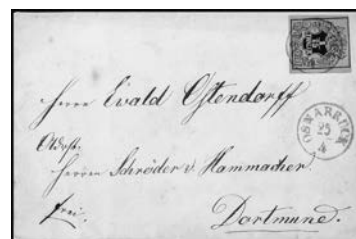 Herrn Ewald Ostendorff
Herren Schröder & Hammacher.
frei.
Dortmund.
OSNABRÜCK
25
4